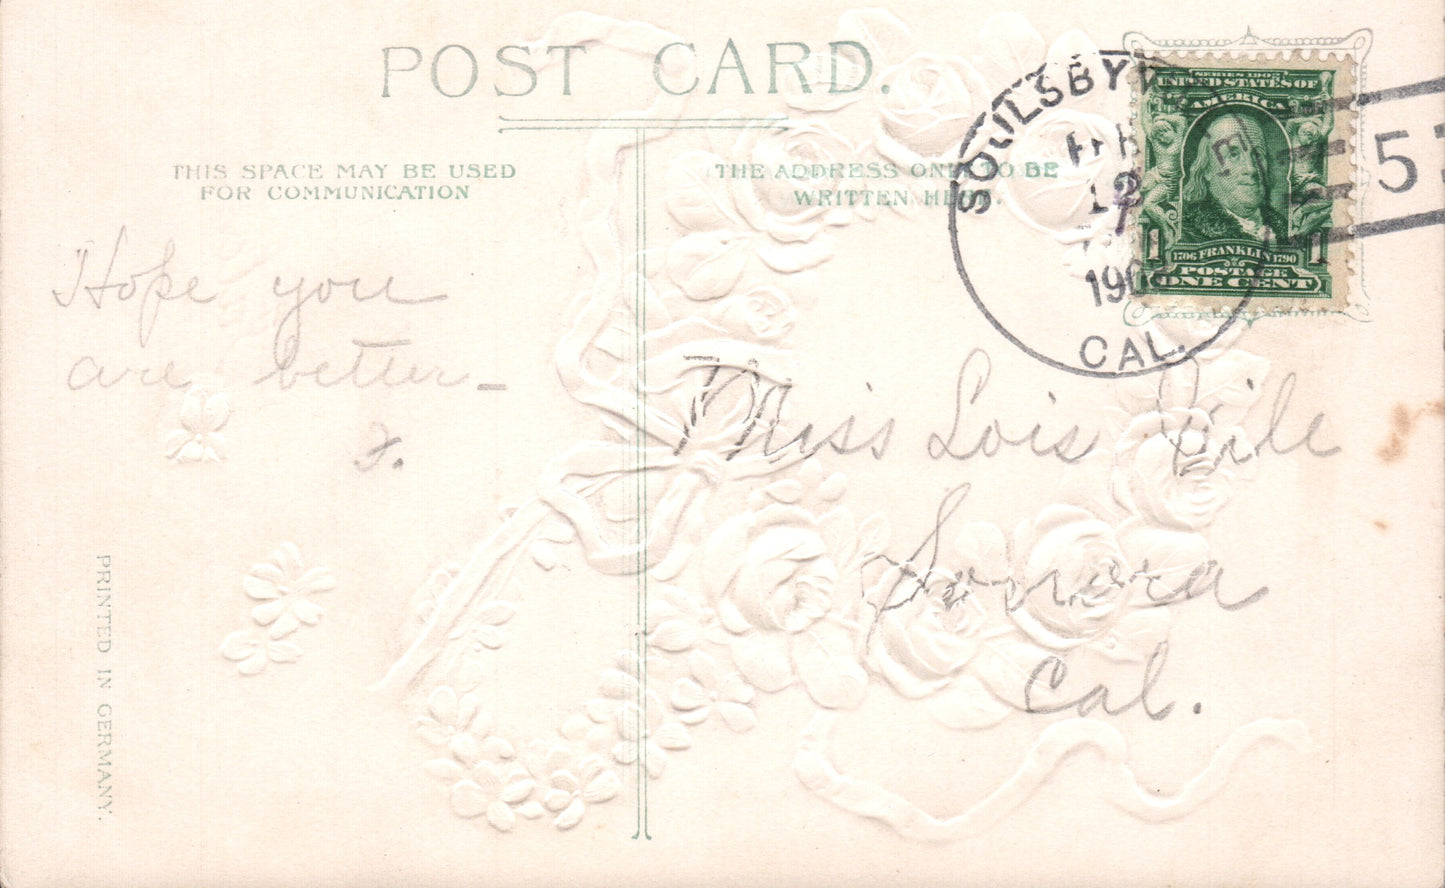 POST CARD.
THIS SPACE MAY BE USED
FOR COMMUNICATION
THE ADDRESS ONLY TO BE
WRITTEN HERE.
SOULSBYVILLE
FEB
12
190
CAL.
SERIES 1902
UNITED STATES OF
AMERICA
1706 FRANKLIN 1790
1 POSTAGE 1
ONE CENT
5
Hope you
are better –
Miss Lois
Sonora
Cal.
PRINTED IN GERMANY.